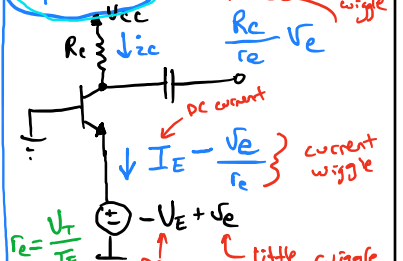 wiggle
Vcc
Rc
ic
Rc/re ve
DC current
IE - ve/re
current
wiggle
-VE + ve
re = VT/IE
little
wiggle